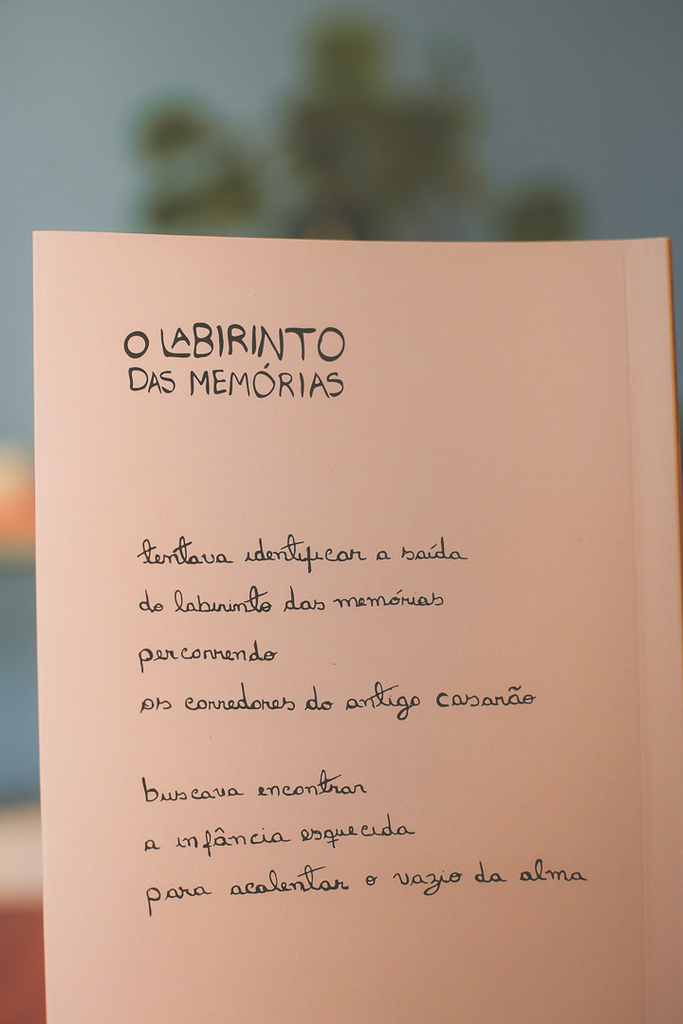 O LABIRINTO
DAS MEMÓRIAS
tentava identificar a saída
do labirinto das memórias
percorrendo
os corredores do antigo casarão
buscava encontrar
a infância esquecida
para acalentar o vazio da alma